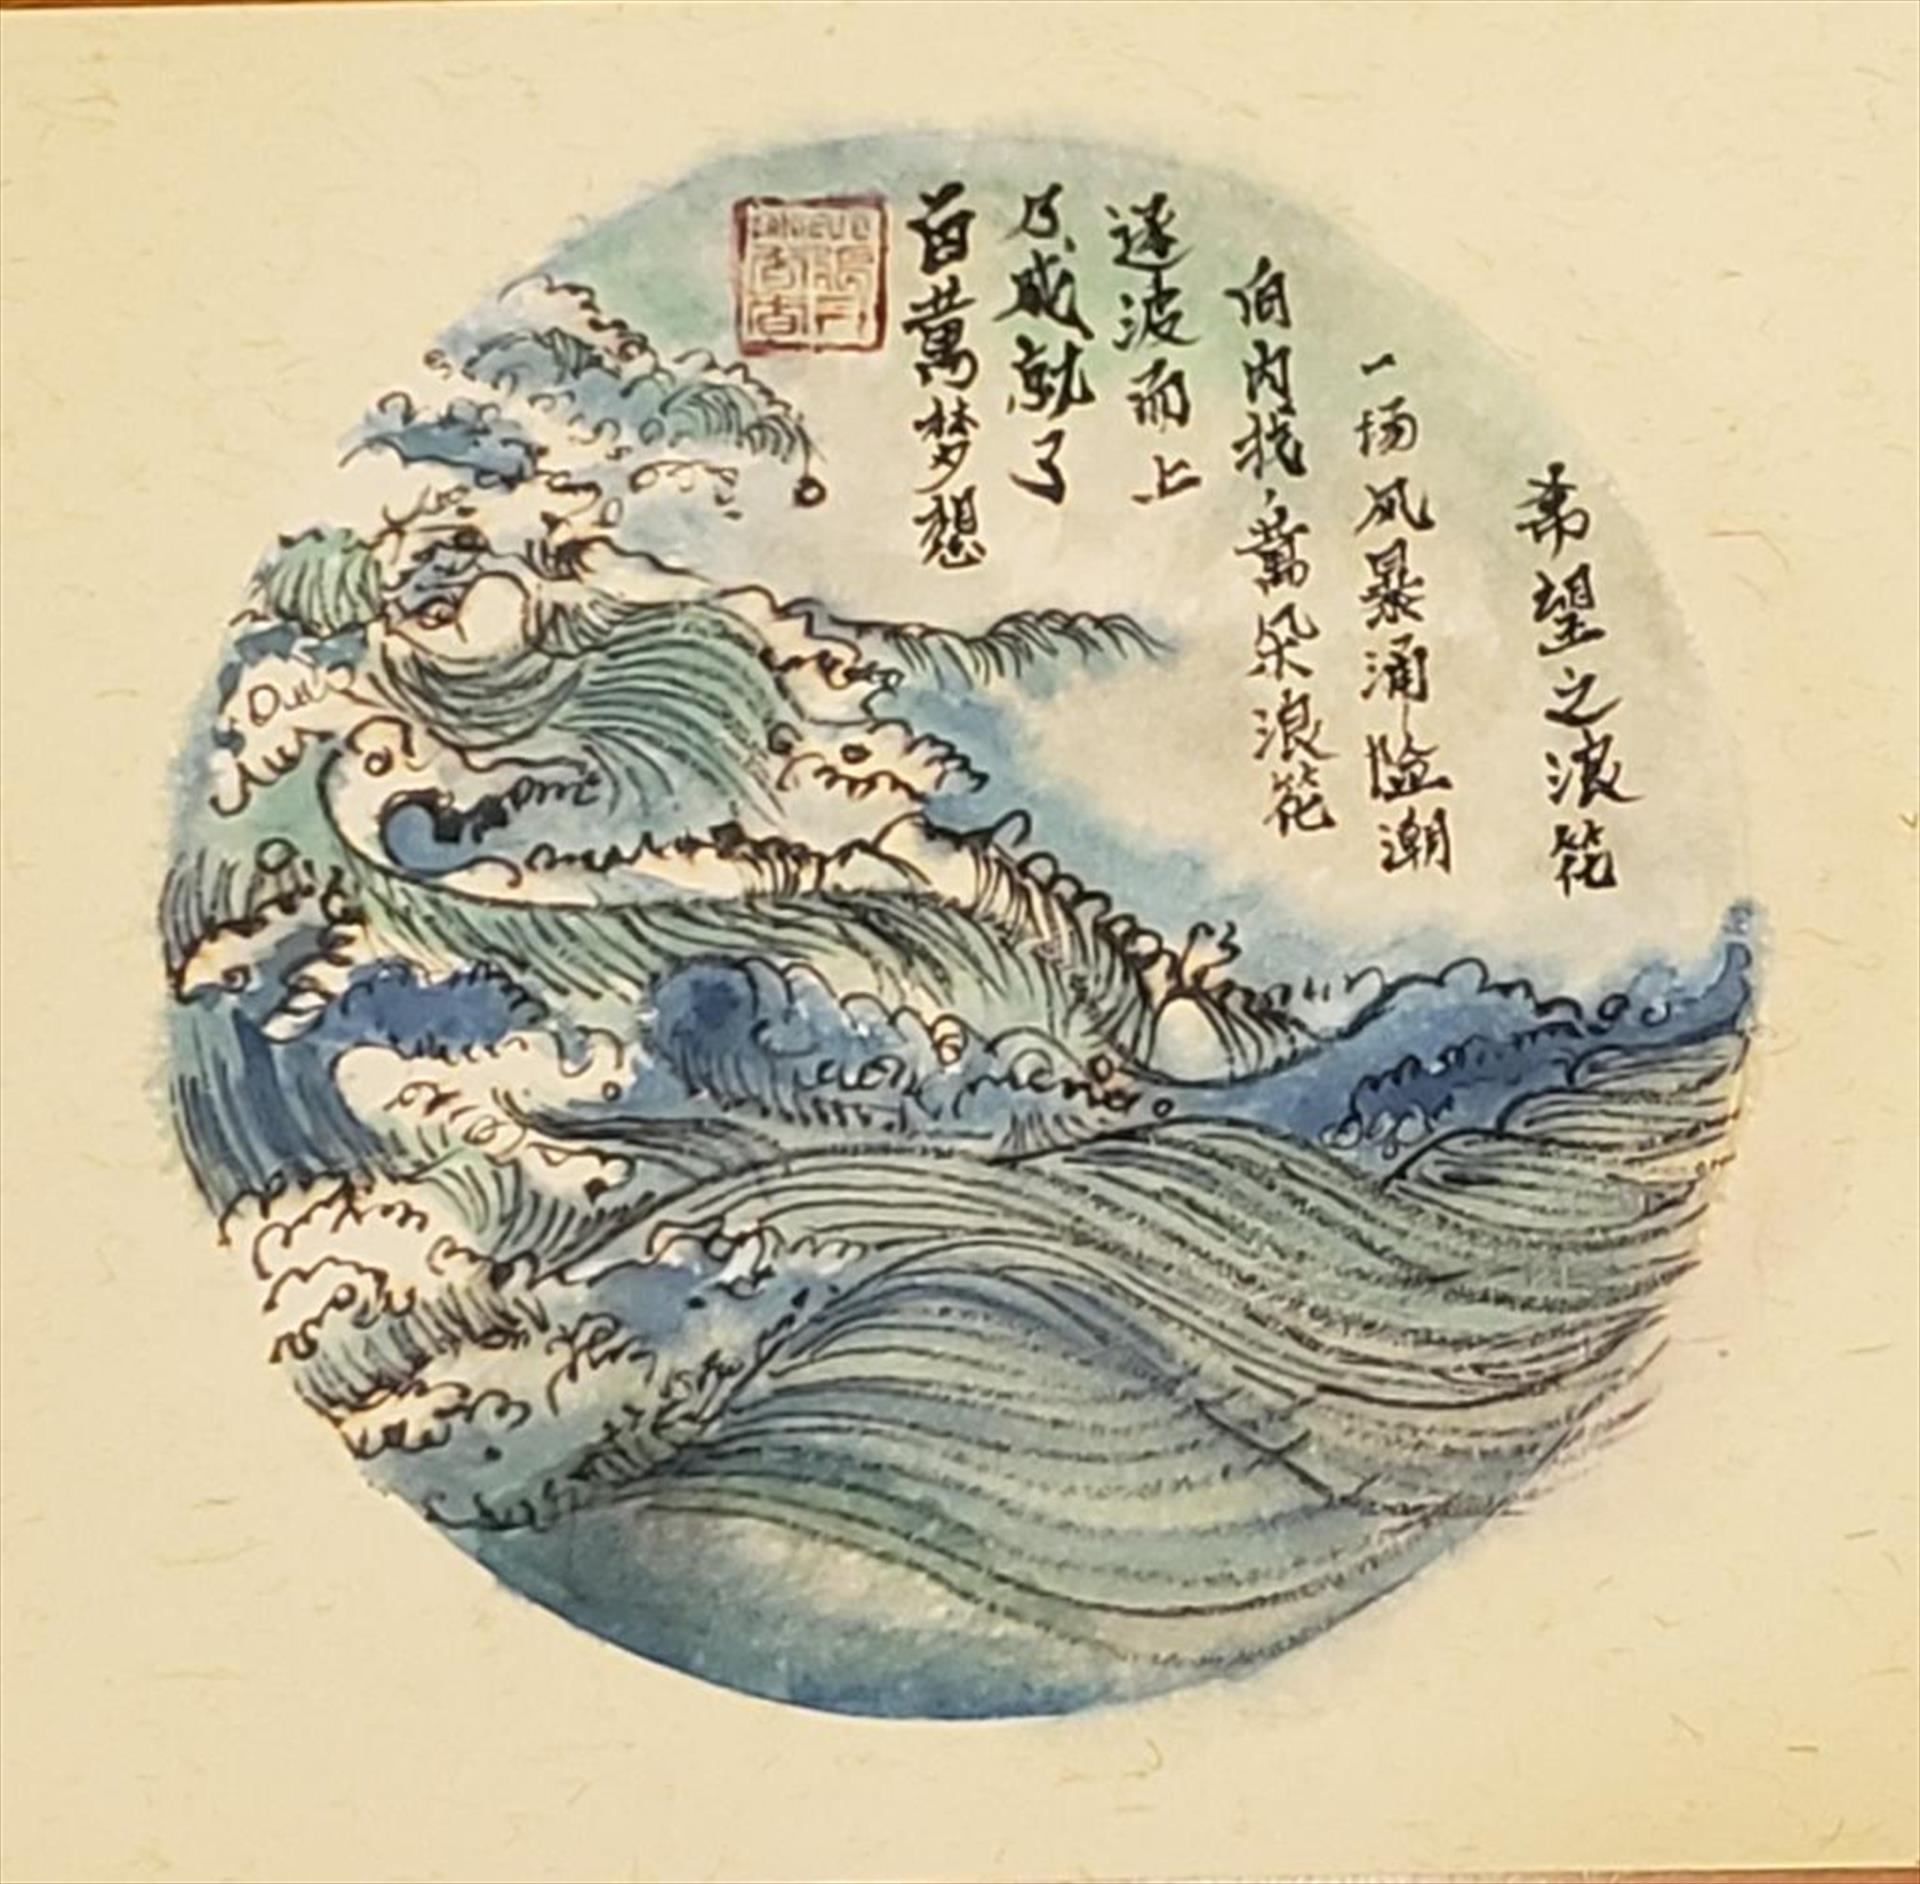 希望之浪花
一场风暴涌险潮
向内找，万朵浪花
逐波而上
乃成就了
百萬梦想